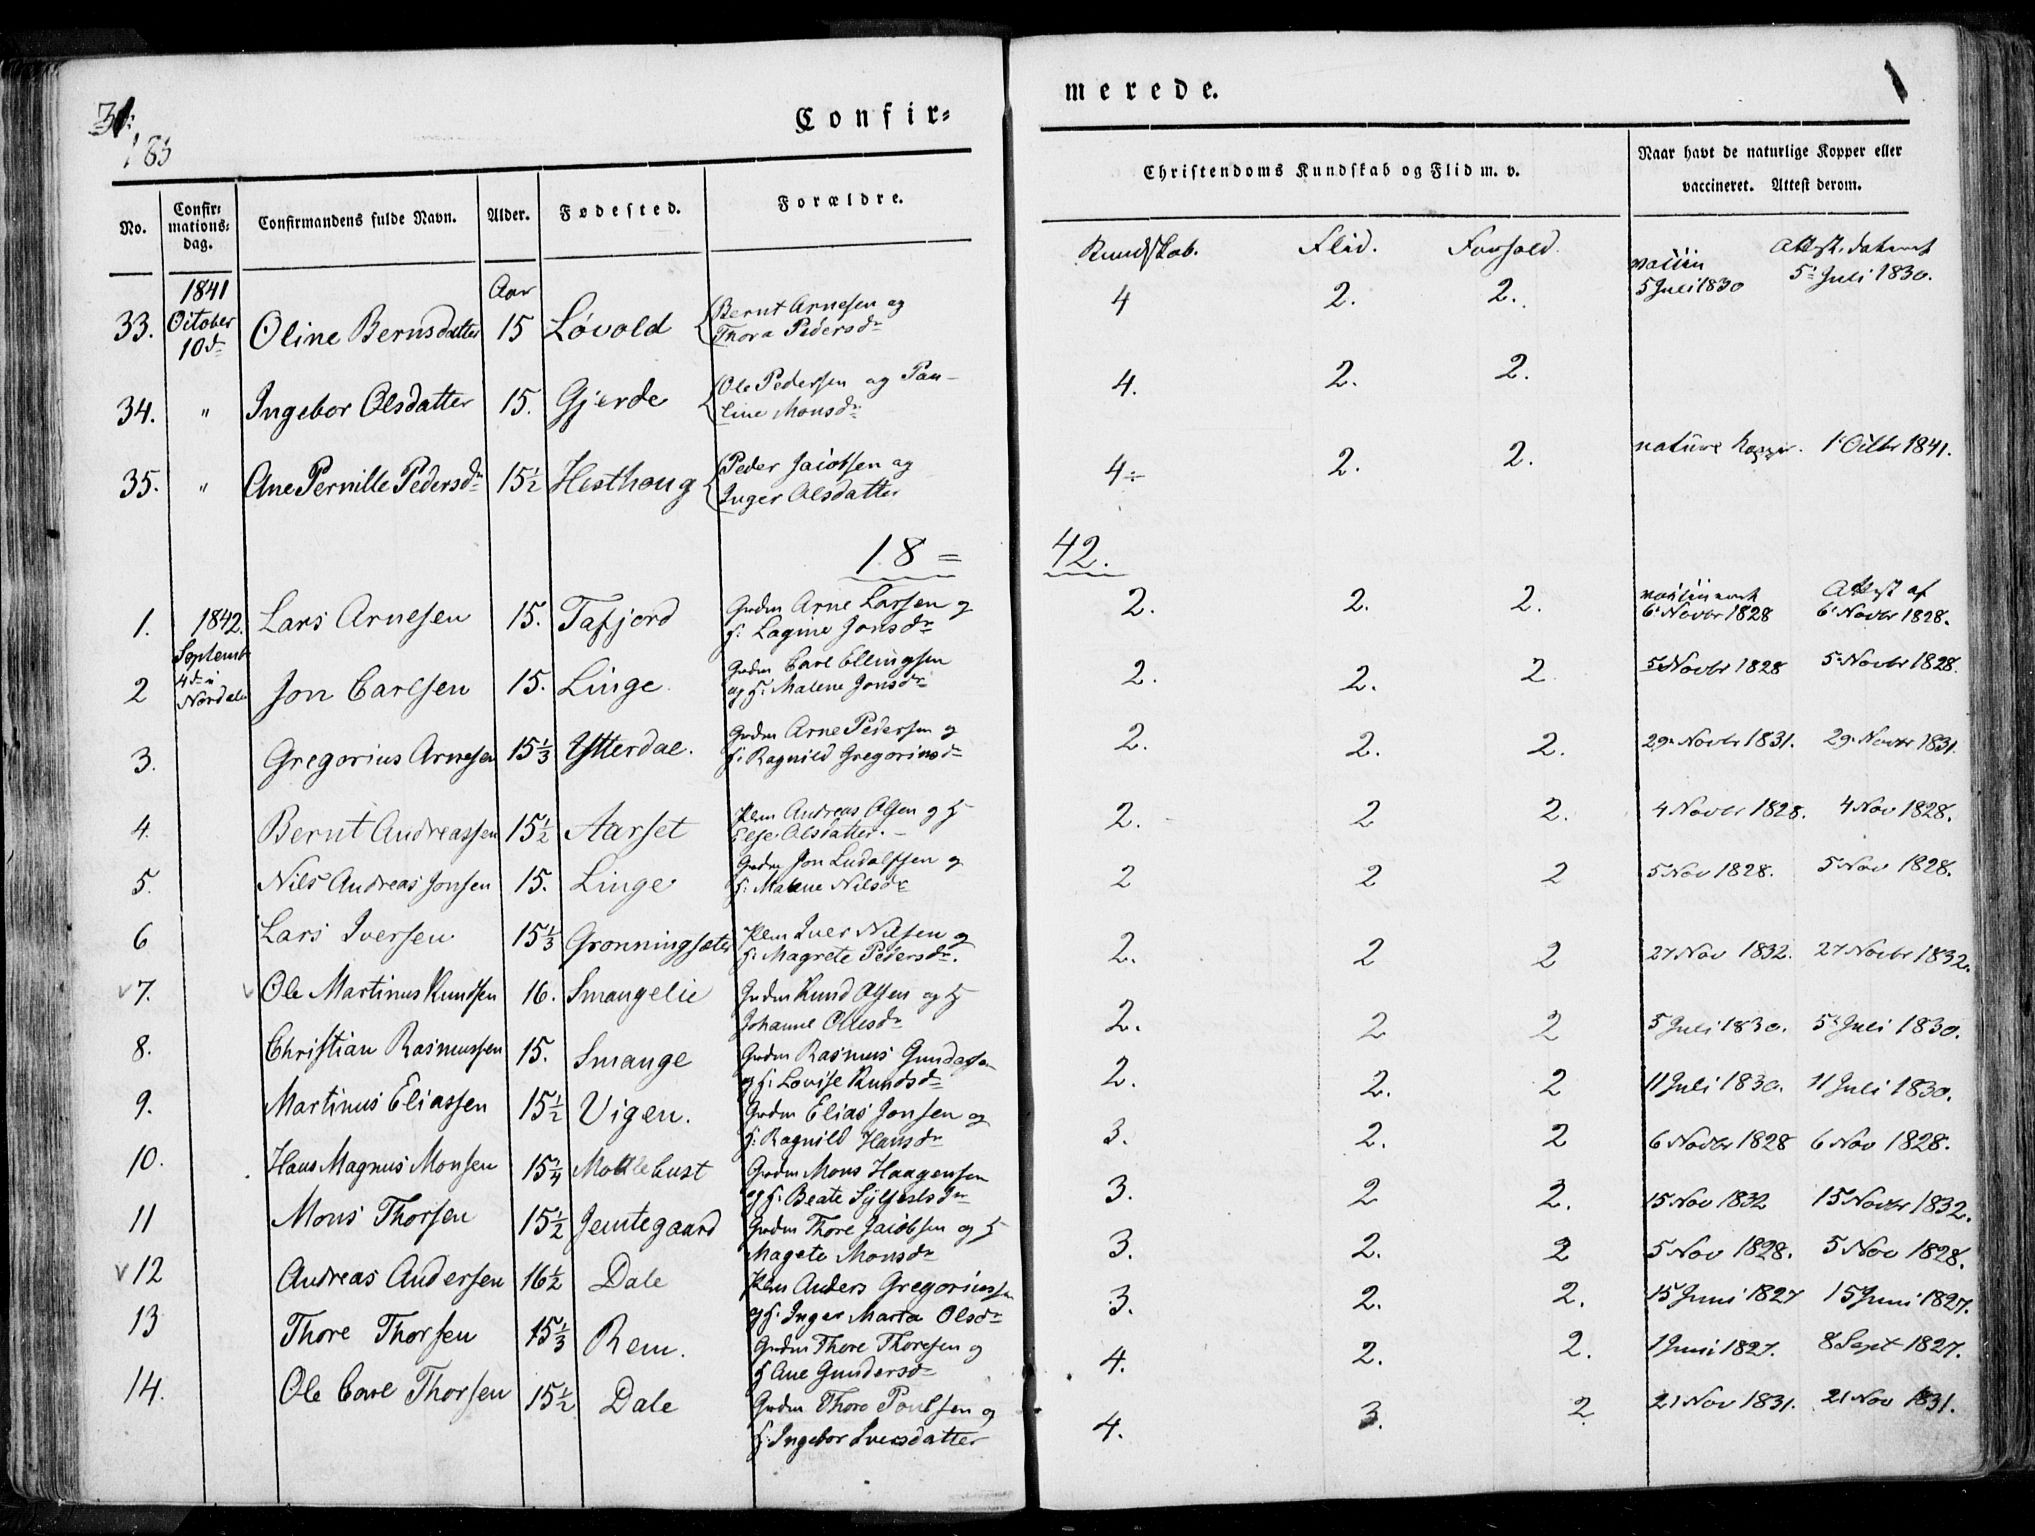 183
Confir=
merede.
No. Confir= mations= dag. Confirmandens fulde Navn. Alder. Fødested. Forældre. Christendoms Kundskab og Flid m. v. Naar havt de naturlige Kopper eller vaccineret. Attest derom.
Kundskab. Flid. Forhold.
33. 1841 October 10d Oline Bernsdatter Aar 15 Løvold Bernt Arnesen og Thora Pedersdr 4 2. 2. 5 Juli 1830 5 Juli 1830.
34. " Ingebor Olsdatter 15. Gjerde Ole Pedersen og Pau-
line Monsdr 4. 2. 2.
35. " Ane Pernille Pedersdr 15½ Hesthoug Peder Jacobsen og
Inger Olsdatter 4÷ 2. 2. nature Kopper. 1 Octbr 1841.
18=42.
1. 1842. Septemb 4d i Nordal Lars Arnesen 15. Tafjord Gmdm Arne Larsen og
H: Lagine Jonsdr 2. 2. 2. 6 Novbr 1828 Attest af 6 Novbr 1828.
2 Jon Carlsen 15. Linge. Gmdm Carl Ellingsen
og H: Malene Jonsdr 2. 2. 2. 5 Novbr 1828 5 Novbr 1828.
3. Gregorius Arnesen 15⅓ Ytterdal. Gmdm Arne Pedersen og
H: Ragnild Gregoriusdr 2. 2. 2. 29 Novbr 1831. 29 Novbr 1831.
4. Bernt Andreassen 15½ Aarset Plm Andreas Olsen og H
Else Olsdatter. 2. 2 2. 4 Novbr 1828. 4 Nov 1828.
5. Nils Andreas Jonsen 15. Linge Gmdm Jon Ludalfsen og
H: Malene Nilsdr 2 2 2 5 Nov 1828. 5 Nov 1828.
6 Lars Iversen 15⅓ Gronningsæter Plm Iver Nilsen og
H: Magrete Pedersdr. 2. 2 2 27 Nov 1832. 27 Novbr 1832.
v 7. v Ole Martinus Knudsen 16. Smangelie Gmdm Knud Olsen og H
Johanne Ollesdr 2. 2 2 5 Juli 1830. 5 Juli 1830.
8. Christian Rasmussen 15. Smange Gmdm Rasmus
og H: Lovise Knudsdr 2. 2. 2 11 Juli 1830. 11 Juli 1830.
9. Martinus Eliassen 15½ Vigen. Gmdm Elias Jonsen og
H: Ragnild Hansdr 3. 2. 2 6 Novbr 1828 6 Nov 1828.
10. Hans Magnus Monsen 15¼ Moldebust Gmdm Mons Haagensen
og H: Beate Sylfestsdr 3. 2 2. 15 Nov 1832 15 Novbr 1832.
11 Mons Thorsen 15½ Jemtegaard Gmdm Thore Jacobsen og H
Magete Monsdr 3. 2. 2 5 Nov 1828. 5 Nov 1828.
v 12 Andreas Andersen 16½ Dale Plm Anders Gregoriussen
og H: Inger Marta Olsdr 3. 2. 2. 15 Juni 1827 15 Juni 1827.
13 Thore Thorsen 15⅓ Rem. Gmdm Thore Thoresen og
H Ane Gundersdr 4. 2. 2. 1 Juni 1827. 8 Sept 1827.
14. Ole Carl Thorsen 15½ Dale Gmdm Thore Poulsen og
H: Ingebor Iversdatter 4. 3. 2 21 Nov 1831. 21 Nov 1831.